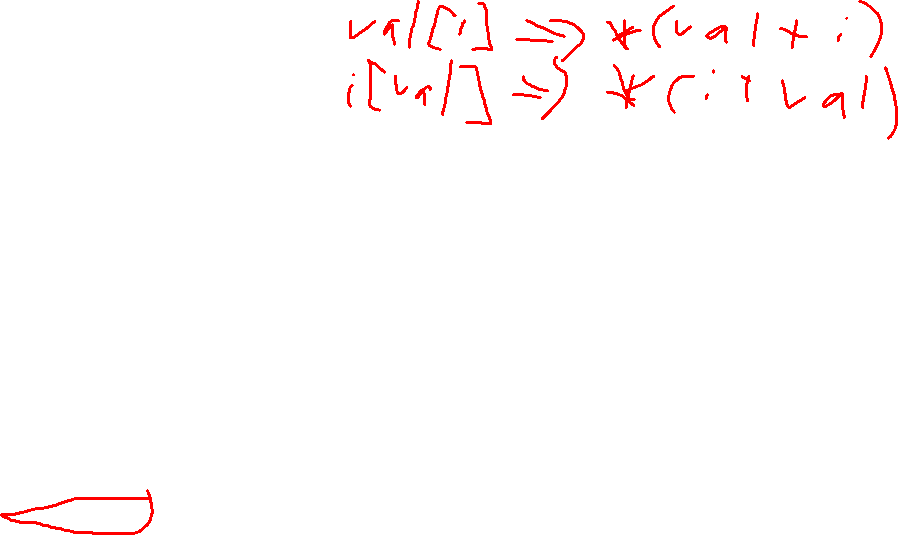 val[i] => *(val + i)
i[val] => *(i + val)